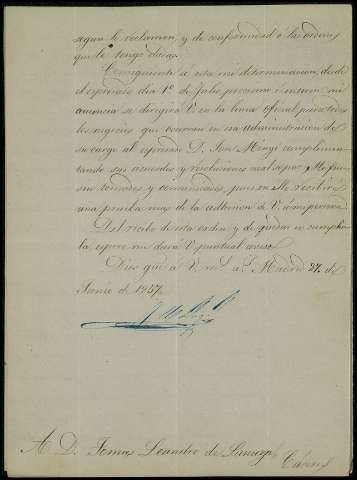 segun lo reclamen, y de conformidad á las ordenes
que le tengo dadas.
Consiguiente á esta mi determinacion, desde
el espresado dia 1º de Julio procsimo é interin mi
ausencia se dirigirá V. en la linea oficial para todos
los negocios que ocurran en esa administracion de
su cargo al espresado D. José cumplimen-
tando sus acuerdos y resoluciones cual si por Mi fue-
sen tomados y comunicados, pues en ello recibiré
una prueba mas de la adhesion de V. á mi persona.
Del recibo de esta orden y de quedar en cumplir-
la espero me dará V. puntual aviso.
Dios gue á V. m. a. Madrid 27 de
Junio de 1857.
A D. Tomas Leandro de